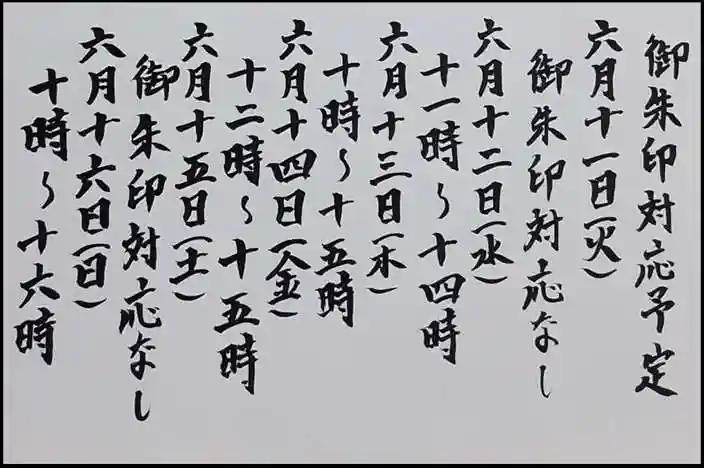 御朱印対応予定
六月十一日(火)
御朱印対応なし
六月十二日(水)
十一時～十四時
六月十三日(木)
十時～十五時
六月十四日(金)
十二時～十五時
六月十五日(土)
御朱印対応なし
六月十六日(日)
十時～十六時